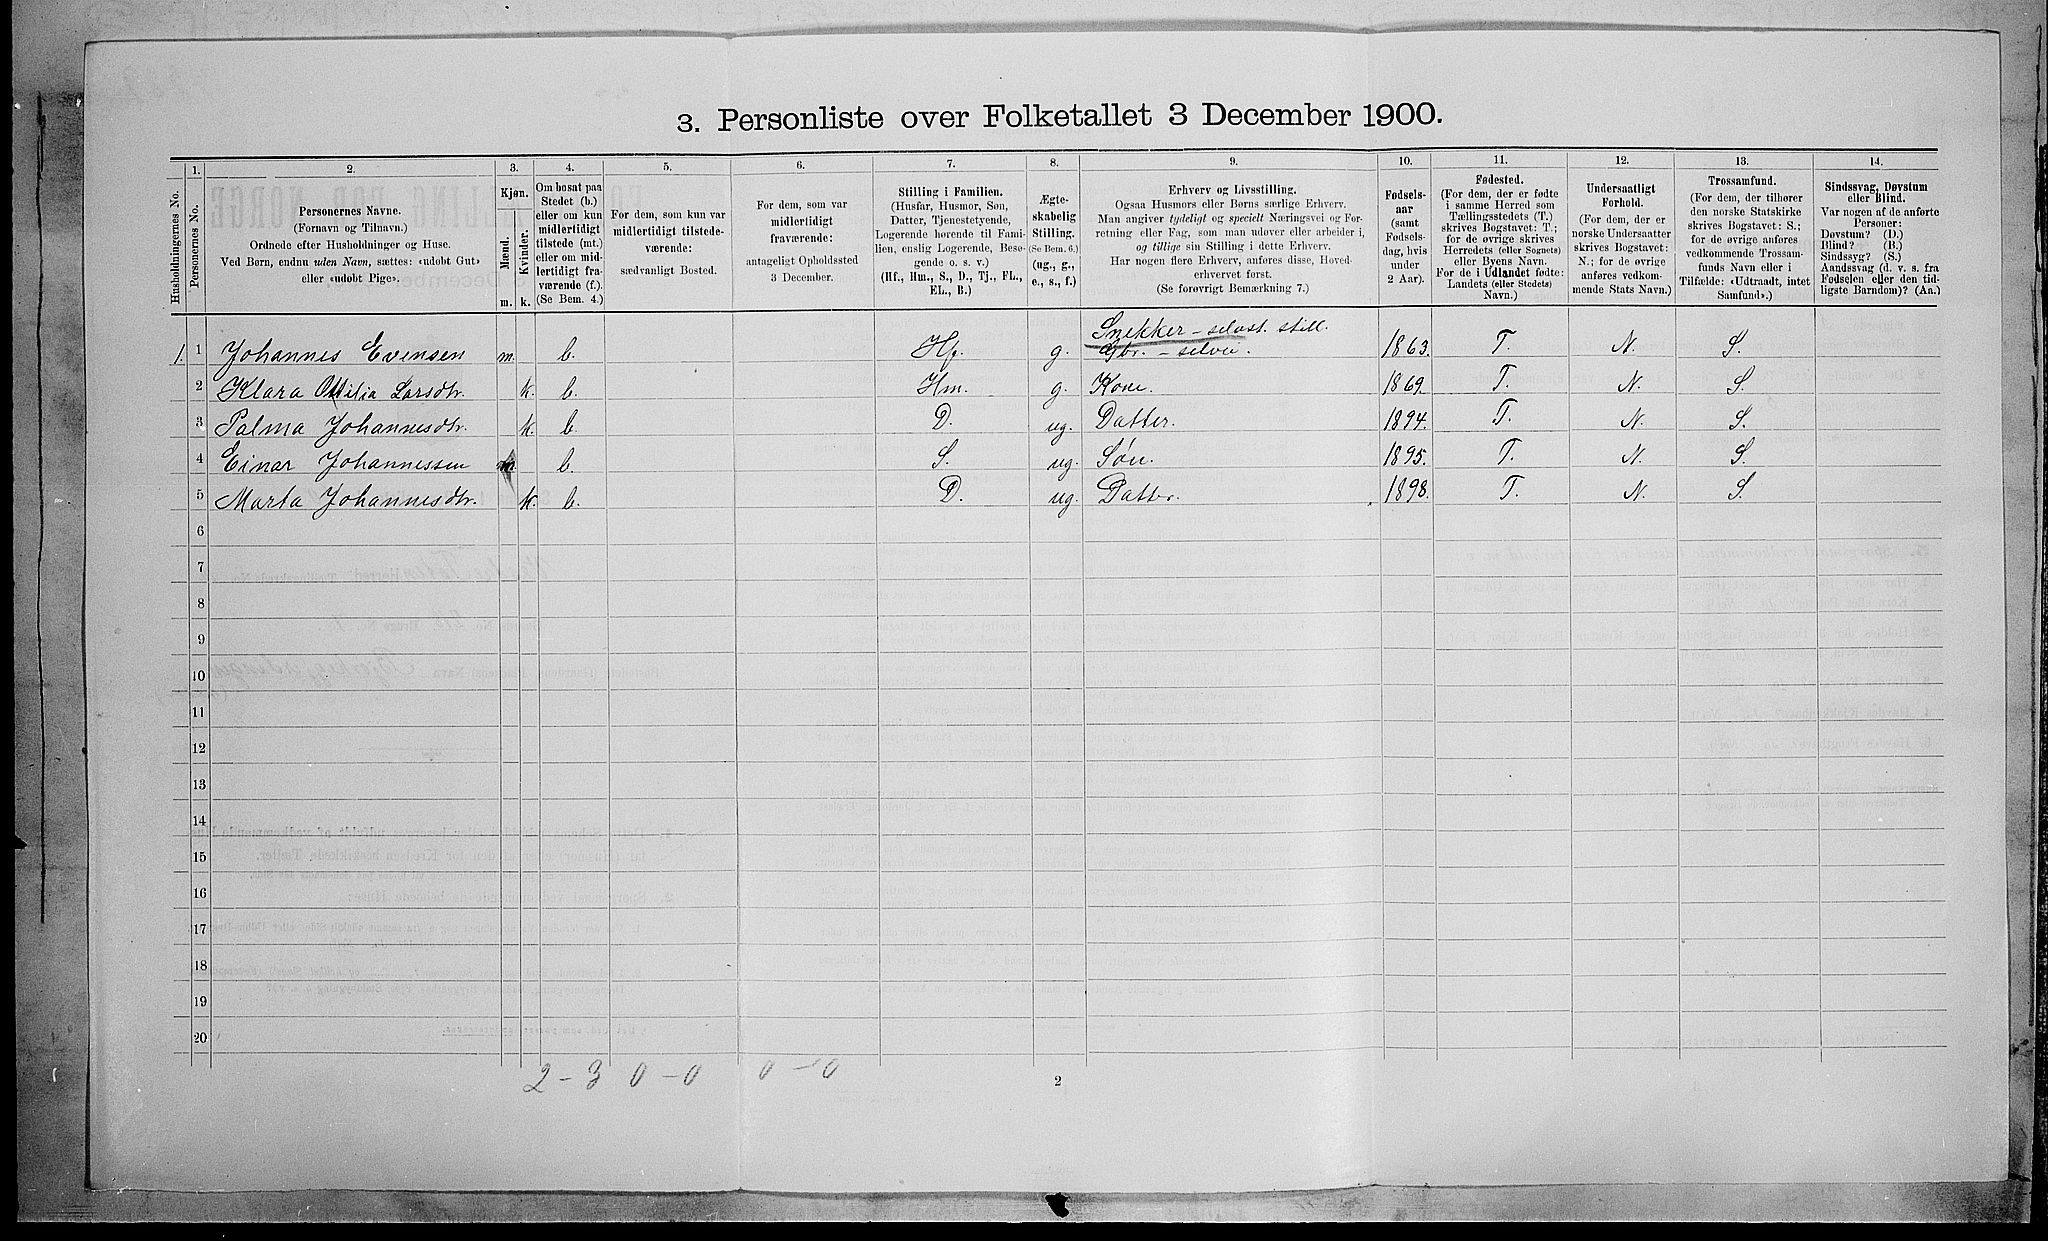 3. Personliste over Folketallet 3 December 1900.
1. 2. 3. 4. 5. 6. 7. 8. 9. 10. 11. 12. 13. 14.
Husholdningernes No.
Personernes No.
Personernes Navne.
(Fornavn og Tilnavn.)
Ordnede efter Husholdninger og Huse.
Ved Børn, endnu uden Navn, sættes: «udøbt Gut»
eller «udøbt Pige».
Kjøn.
Mænd.
Kvinder.
m. k.
Om bosat paa
Stedet (b.)
eller om kun
midlertidigt
tilstede (mt.)
eller om mid-
lertidigt fra-
værende (f.)
(Se Bem. 4.)
For dem, som kun var
midlertidigt tilstede-
værende:
sædvanligt Bosted.
For dem, som var
midlertidigt
fraværende:
antageligt Opholdssted
3 December.
Stilling i Familien.
(Husfar, Husmor, Søn,
Datter, Tjenestetyende,
Logerende hørende til Fami-
lien, enslig Logerende, Besø-
gende o. s. v.)
(Hf., Hm., S., D., Tj., FL.,
EL., B.)
Ægte-
skabelig
Stilling.
(Se Bem. 6.)
(ug., g.,
e., s., f.)
Erhverv og Livsstilling.
Ogsaa Husmors eller Børns særlige Erhverv.
Man angiver tydeligt og specielt Næringsvei og For-
retning eller Fag, som man udøver eller arbeider i,
og tillige sin Stilling i dette Erhverv.
Har nogen flere Erhverv, anføres disse, Hoved-
erhvervet først.
(Se forøvrigt Bemærkning 7.)
Fødsels-
aar
(samt
Fødsels-
dag, hvis
under
2 Aar).
Fødested.
(For dem, der er fødte
i samme Herred som
Tællingsstedets (T.)
skrives Bogstavet: T.;
for de øvrige skrives
Herredets (eller Sognets)
eller Byens Navn.
For de i Udlandet fødte:
Landets (eller Stedets)
Navn.)
Undersaatligt
Forhold.
(For dem, der er
norske Undersaatter
skrives Bogstavet:
N.; for de øvrige
anføres vedkom-
mende Stats Navn.)
Trossamfund.
(For dem, der tilhører
den norske Statskirke
skrives Bogstavet: S.;
for de øvrige anføres
vedkommende Trossam-
funds Navn eller i
Tilfælde: «Udtraadt, intet
Samfund».)
Sindssvag, Døvstum
eller Blind.
Var nogen af de anførte
Personer:
Døvstum? (D.)
Blind? (B.)
Sindssyg? (S.)
Aandssvag (d. v. s. fra
Fødselen eller den tid-
ligste Barndom)? (Aa.)
Snekker – selvst. still.
1. 1 Johannes Evensen m. b. Hf. g. Gbr. – selvei. 1863. T. N. S.
2 Klara Ottilia Larsdtr. k. b. Hm. g. Kone. 1869. T. N. S.
3 Palma Johannesdtr. k. b. D. ug. Datter. 1894. T. N. S.
4 Einar Johannessen m b. S. ug. Søn. 1895. T. N. S.
5 Marta Johannesdtr. k. b. D. ug. Datter. 1898. T. N. S.
6
7
8
9
10
11
12
13
14
15
16
17
18
19
20
2 – 3 0 – 0 0 – 0
2